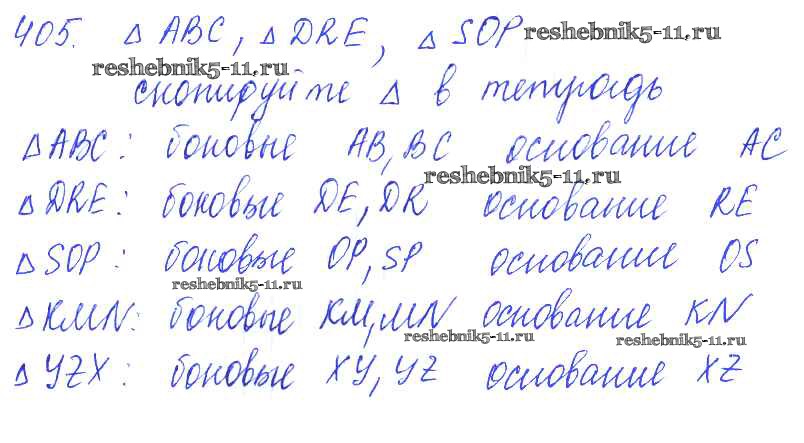 405. △ ABC, △ DRE, △ SOP reshebnik5-11.ru
reshebnik5-11.ru
скопируйте △ в тетрадь
△ ABC: боковые AB, BC основание AC
reshebnik5-11.ru
△ DRE: боковые DE, DR основание RE
△ SOP: боковые OP, SP основание OS
reshebnik5-11.ru
△ KMN: боковые KM, MN основание KN
reshebnik5-11.ru reshebnik5-11.ru
△ YZX: боковые XY, YZ основание XZ